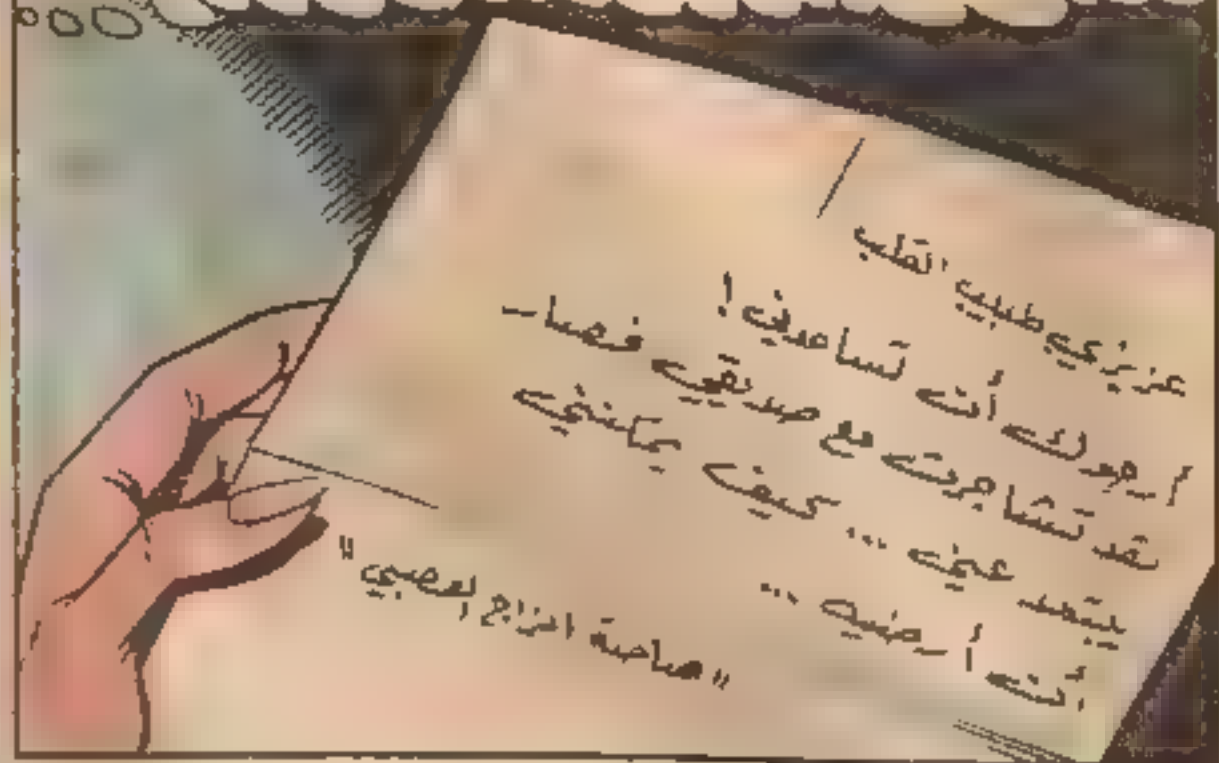 عزيزي طبيب القلب /
أرجوك أن تساعدني !
لقد تشاجرت مع صديقي فصا -
يبتعد عني ... كيف يمكنني
أن أرضيه ...
"صاحبة المزاج العصبي"